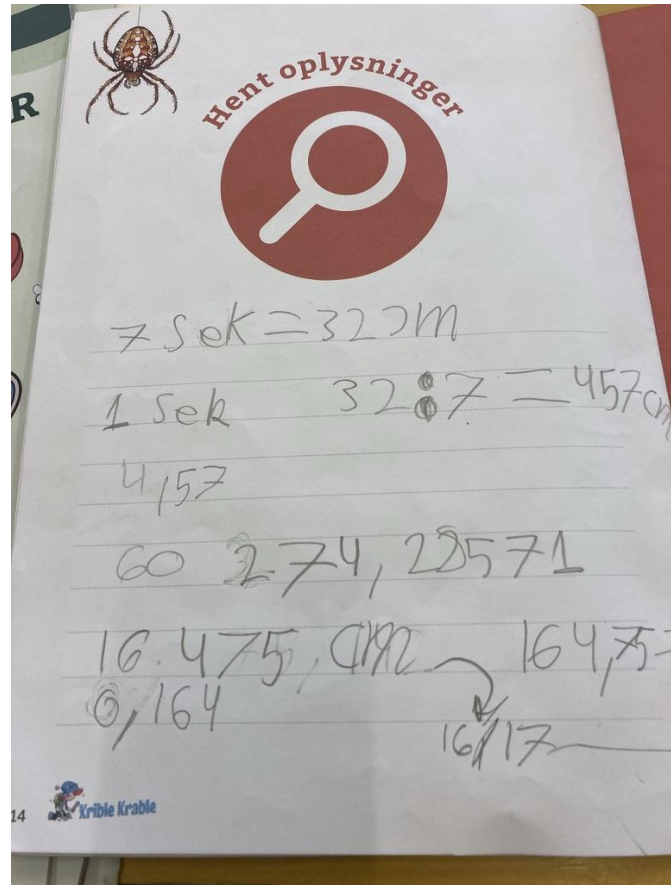 R
Hent oplysninger
7 Sek = 32 m
1 Sek 32:7 = 457 cm
4,57
60 274,28571
16.475, cm 164,75
0,164
16/17
14 Krible Krable